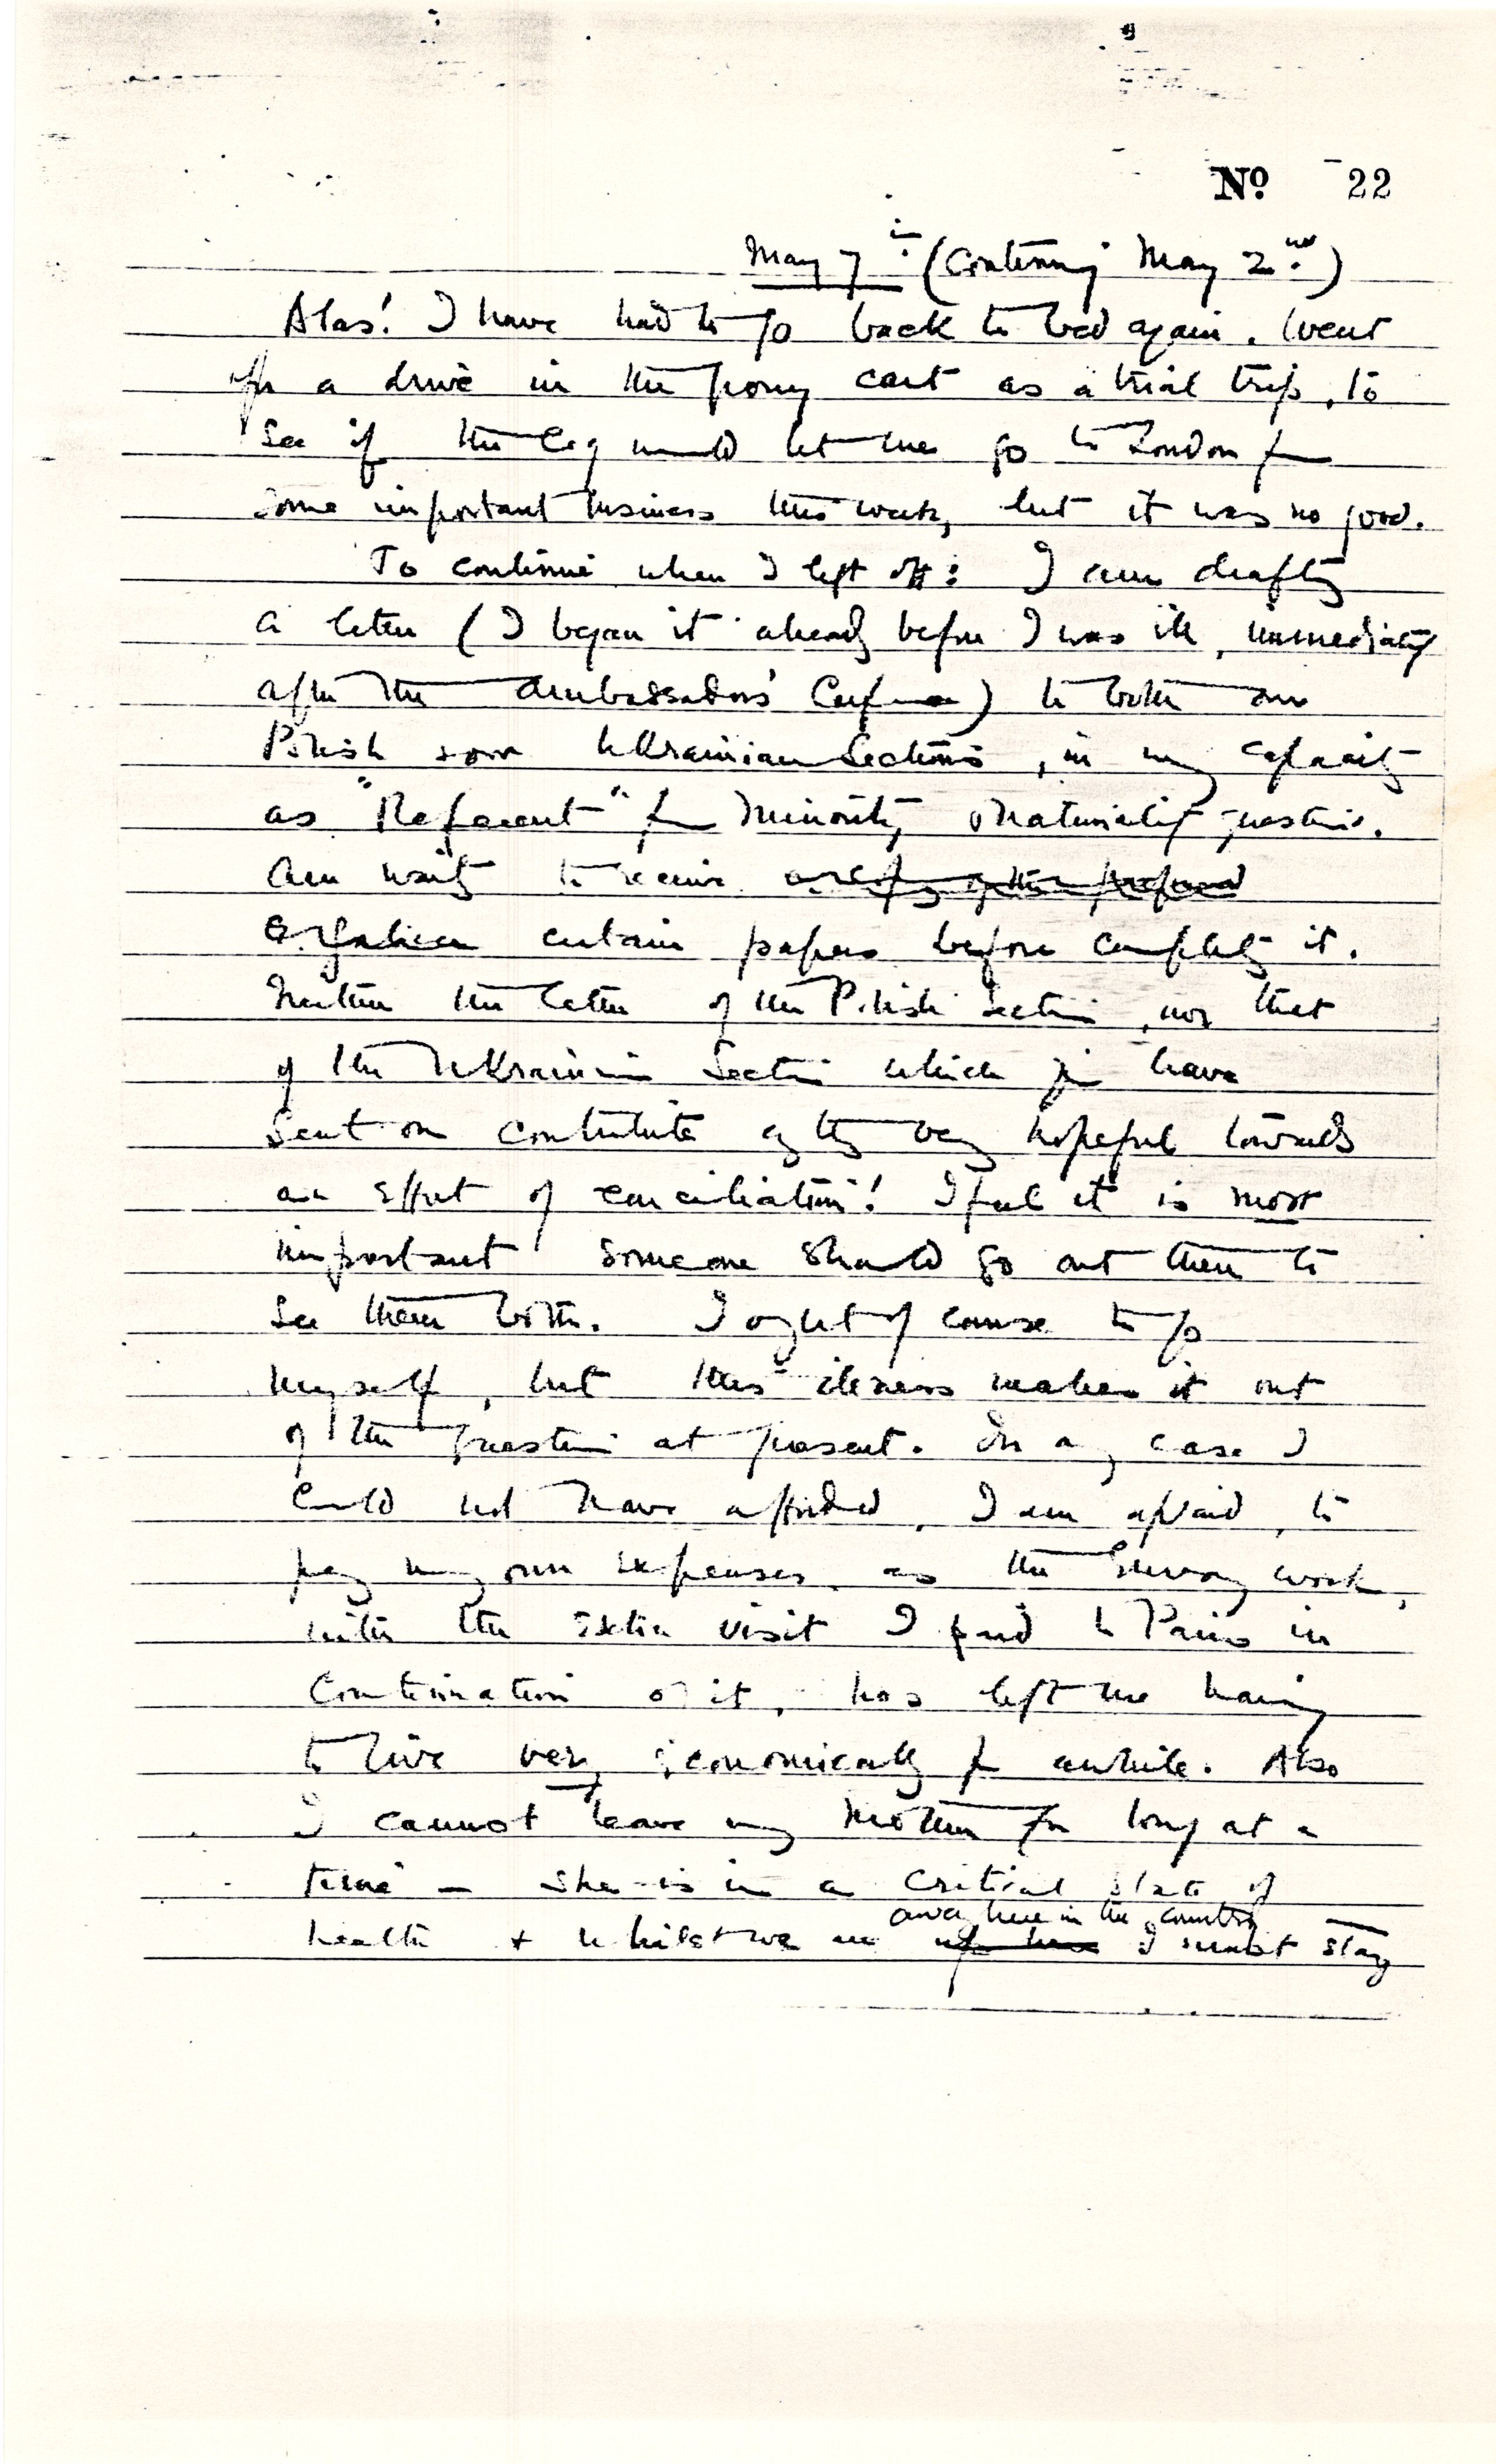 Nº 22
May 7th (Continuing May 2nd)
Alas! I have had to go back to bed again. Went
for a drive in the pony cart as a trial trip, to
see if the leg would let me go to London for
some important business this week, but it was no good.
To continue where I left off: I am drafting
a letter (I began it already before I was ill, immediately
after the Ambassadors' Conference) to both our
Polish & our Ukrainian Sections, in my capacity
as "Referent" for Minority & Nationality questions.
Am waiting to receive a copy of the proposed
certain papers before completing it.
Neither the letter of the Polish Section, nor that
of the Ukrainian Section which you have
sent on contribute anything very hopeful towards
an effort of conciliation! I feel it is most
important someone should go out there to
see them both. I ought of course to go
myself, but this illness makes it out
of the question at present. In any case I
could not have afforded, I am afraid, to
pay my own expenses, as the work,
with the extra visit I paid to Paris in
continuation of it, has left me having
to live very economically for awhile. Also
I cannot leave my Mother for long at a
time – she is in a critical state of
away here in the country
health & whilst we are up here I must stay